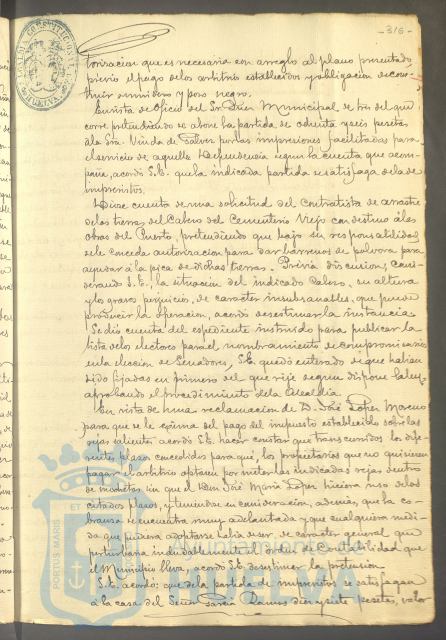 -316-
torizacion que es necesaria con arreglo al plano presentado,
prévio el pago de los arbitrios establecidos y obligacion de cons-
truir sumidero y pozo negro.
En vista de Oficio del Sr. Juez Municipal de tres del que
corre pretendiendo se abone la partida de ochenta y seis pesetas
á la Sra. Viuda de Galvez por las impresiones facilitadas para
el servicio de aquella Dependencia segun la cuenta que acom-
paña, acordó S.E. que la indicada partida se satisfaga de la de
imprevistos.
Dióse cuenta de una solicitud del Contratista de arrastre
de las tierras del Cabezo del Cementerio Viejo con destino á las
obras del Puerto, pretendiendo que bajo su responsabilidad
se le conceda autorizacion para dar barrenos de polvora para
ayudar á la pica de dichas tierras. Prévia discusion, consi-
derando S.E. la situacion del indicado Cabezo, su altura
y los graves perjuicios, de carácter insubsanables, que puede
producir la operacion, acordó desestimar la instancia.
Se dió cuenta del espediente instruido para publicar la
lista de los electores para el nombramiento de compromisarios
en la eleccion de Senadores, S.E. quedó enterado de que habian
sido fijadas en primero del que rije segun dispone la ley,
aprobando el procedimiento de la Alcaldia.
En vista de una reclamacion de D. José Lopez Moreno
para que se le exima del pago del impuesto establecido sobre las
rejas salientes acordó S.E. hacer constar que transcurridos los dife-
rentes plazos concedidos para que, los propietarios que no quisieran
pagar el arbitrio optasen por meter las indicadas rejas dentro
de sin que el Don José Maria Lopez hiciera uso de los
citados plazos, y teniendo en consideracion, además, que la co-
branza se encuentra muy adelantada y que cualquiera medi-
da que pudiera adoptarse habia de ser de carácter general que
perturbaria indudablemente el orden de Contabilidad que
el Municipio lleva, acordó S.E. desestimar la pretension.
S.E. acordó: que de la partida de imprevistos se satisfagan
á la casa del Señor Garcia Ramos diez y siete pesetas, valor
Ayuntamiento de
HUELVA
PORTUS MARIS ET